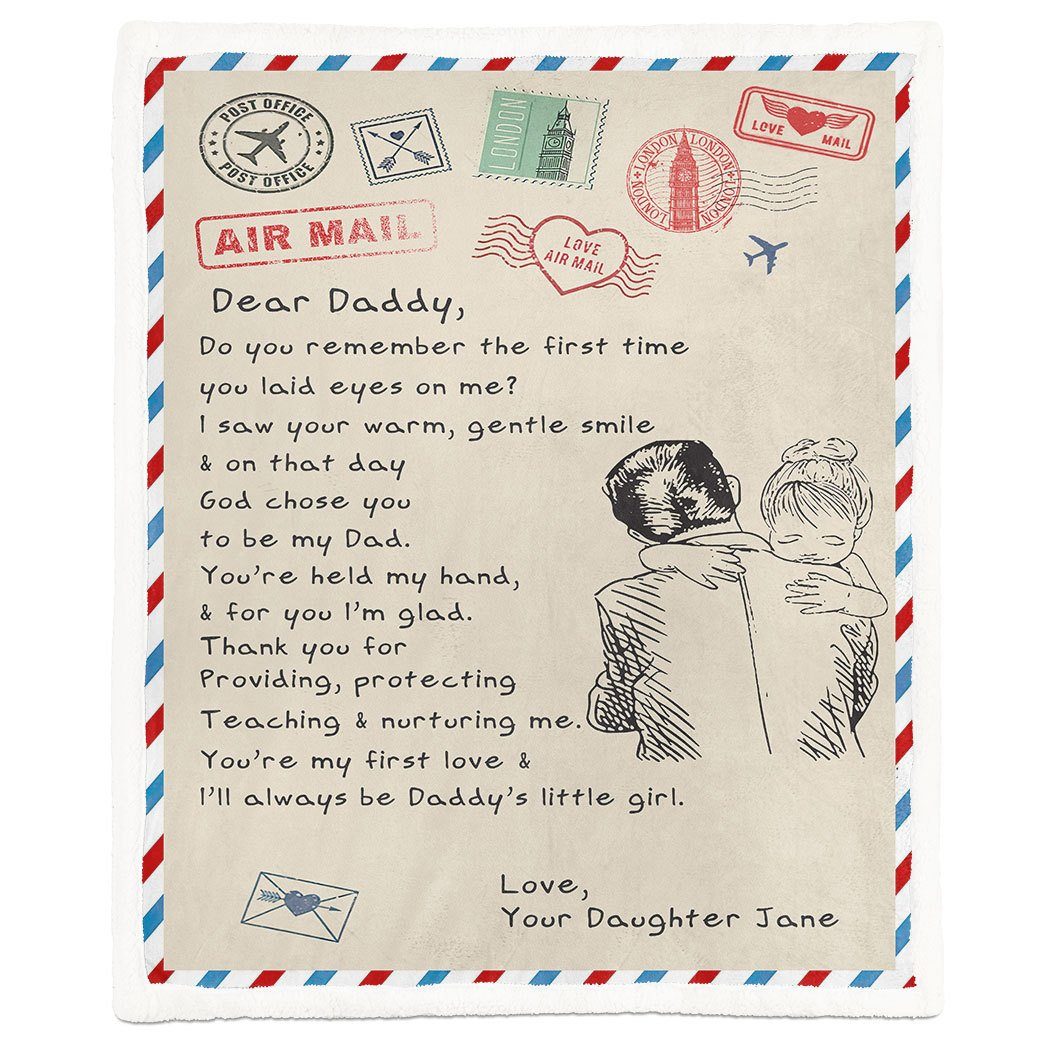 POST OFFICE
POST OFFICE
LONDON
LONDON LONDON
LONDON LONDON
LOVE MAIL
AIR MAIL
LOVE
AIR MAIL
Dear Daddy,
Do you remember the first time
you laid eyes on me?
I saw your warm, gentle smile
& on that day
God chose you
to be my Dad.
You're held my hand,
& for you I'm glad.
Thank you for
Providing, protecting
Teaching & nurturing me.
You're my first love &
I'll always be Daddy's little girl.
Love,
Your Daughter Jane